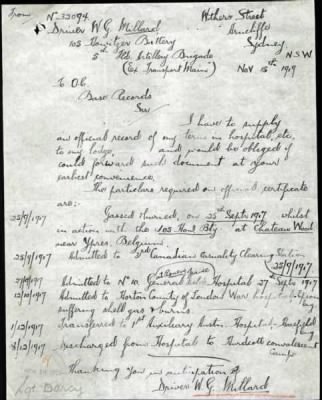 From No 33094
Driver W. G. Millard
103 Howitzer Battery
5th Artillery Brigade
(Ex Transport Main)
Street
Arncliffe
Sydney
N.S.W
Nov 15th 1919
To O/C.
Base Records
Sir
I have to supply
an official record of my terms in hospital, etc.
to my lodge, and would be obliged if
could forward such document at your
earliest convenience.
The particulars required on official certificate
are:-
25/9/1917 Gassed & burned, on 25th Septr 1917 whilst
in action with the 103 Howl Bty at Chateau Wood
near Ypres, Belgium.
25/9/1917 Admitted to 3rd Canadian Casualty Clearing Station
25/9/1917
27/9/1917 Admitted to No 10. General Hospital 27 Septr 1917
12/10/1917 Admitted to Horton County of London War hospital
suffering shell gas & burns.
1/12/1917 Transferred to 1st Auxiliary Austn Hospital Harefield
8/12/1917 Discharged from Hospital to Hurdcott convalescent
Camp
Thanking you in anticipation
Driver W. G. Millard